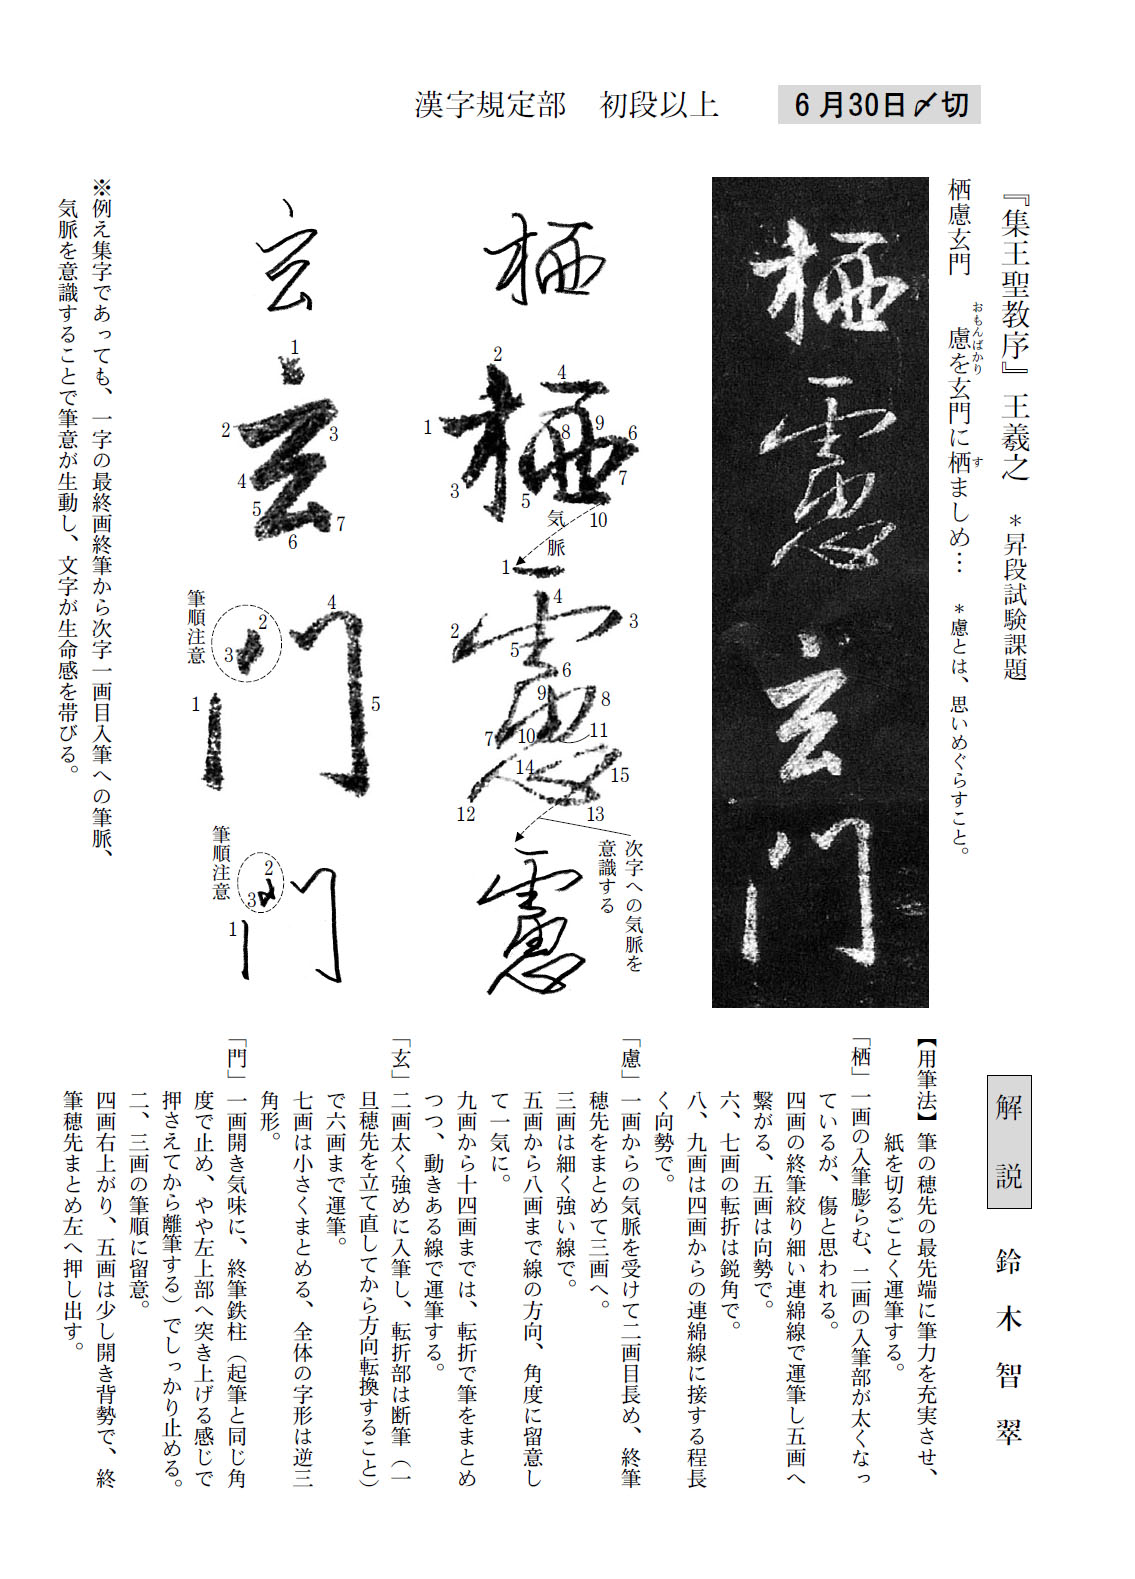 漢字規定部　初段以上
6月30日〆切
『集王聖教序』王羲之　＊昇段試験課題
栖慮玄門　慮を玄門に栖ましめ…　＊慮とは、思いめぐらすこと。
おもんばかり
す
栖慮玄門
栖
栖
1
2
3
4
5
6
7
8
9
10
気脈
慮
1
2
3
4
5
6
7
8
9
10
11
12
13
14
15
次字への気脈を
意識する
慮
玄
玄
1
2
3
4
5
6
7
門
1
2
3
4
5
筆順注意
門
1
2
3
筆順注意
※例え集字であっても、一字の最終画終筆から次字一画目入筆への筆脈、
気脈を意識することで筆意が生動し、文字が生命感を帯びる。
解説　鈴木智翠
【用筆法】筆の穂先の最先端に筆力を充実させ、
紙を切るごとく運筆する。
「栖」一画の入筆膨らむ、二画の入筆部が太くなっ
ているが、傷と思われる。
四画の終筆絞り細い連綿線で運筆し五画へ
繋がる、五画は向勢で。
六、七画の転折は鋭角で。
八、九画は四画からの連綿線に接する程長
く向勢で。
「慮」一画からの気脈を受けて二画目長め、終筆
穂先をまとめて三画へ。
三画は細く強い線で。
五画から八画まで線の方向、角度に留意し
て一気に。
九画から十四画までは、転折で筆をまとめ
つつ、動きある線で運筆する。
「玄」二画太く強めに入筆し、転折部は断筆（一
旦穂先を立て直してから方向転換すること）
で六画まで運筆。
七画は小さくまとめる、全体の字形は逆三
角形。
「門」一画開き気味に、終筆鉄柱（起筆と同じ角
度で止め、やや左上部へ突き上げる感じで
押さえてから離筆する）でしっかり止める。
二、三画の筆順に留意。
四画右上がり、五画は少し開き背勢で、終
筆穂先まとめ左へ押し出す。